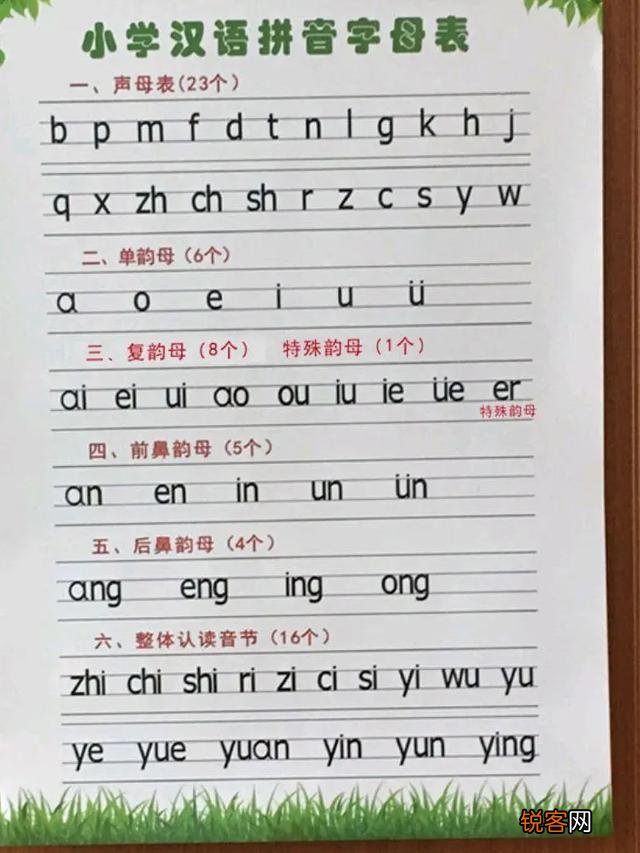 小学汉语拼音字母表
一、声母表(23个)
b p m f d t n l g k h j
q x zh ch sh r z c s y w
二、单韵母（6个）
ɑ o e i u ü
三、复韵母（8个） 特殊韵母（1个）
ɑi ei ui ɑo ou iu ie üe er
特殊韵母
四、前鼻韵母（5个）
ɑn en in un ün
五、后鼻韵母（4个）
ɑng eng ing ong
六、整体认读音节（16个）
zhi chi shi ri zi ci si yi wu yu
ye yue yuɑn yin yun ying
锐客网